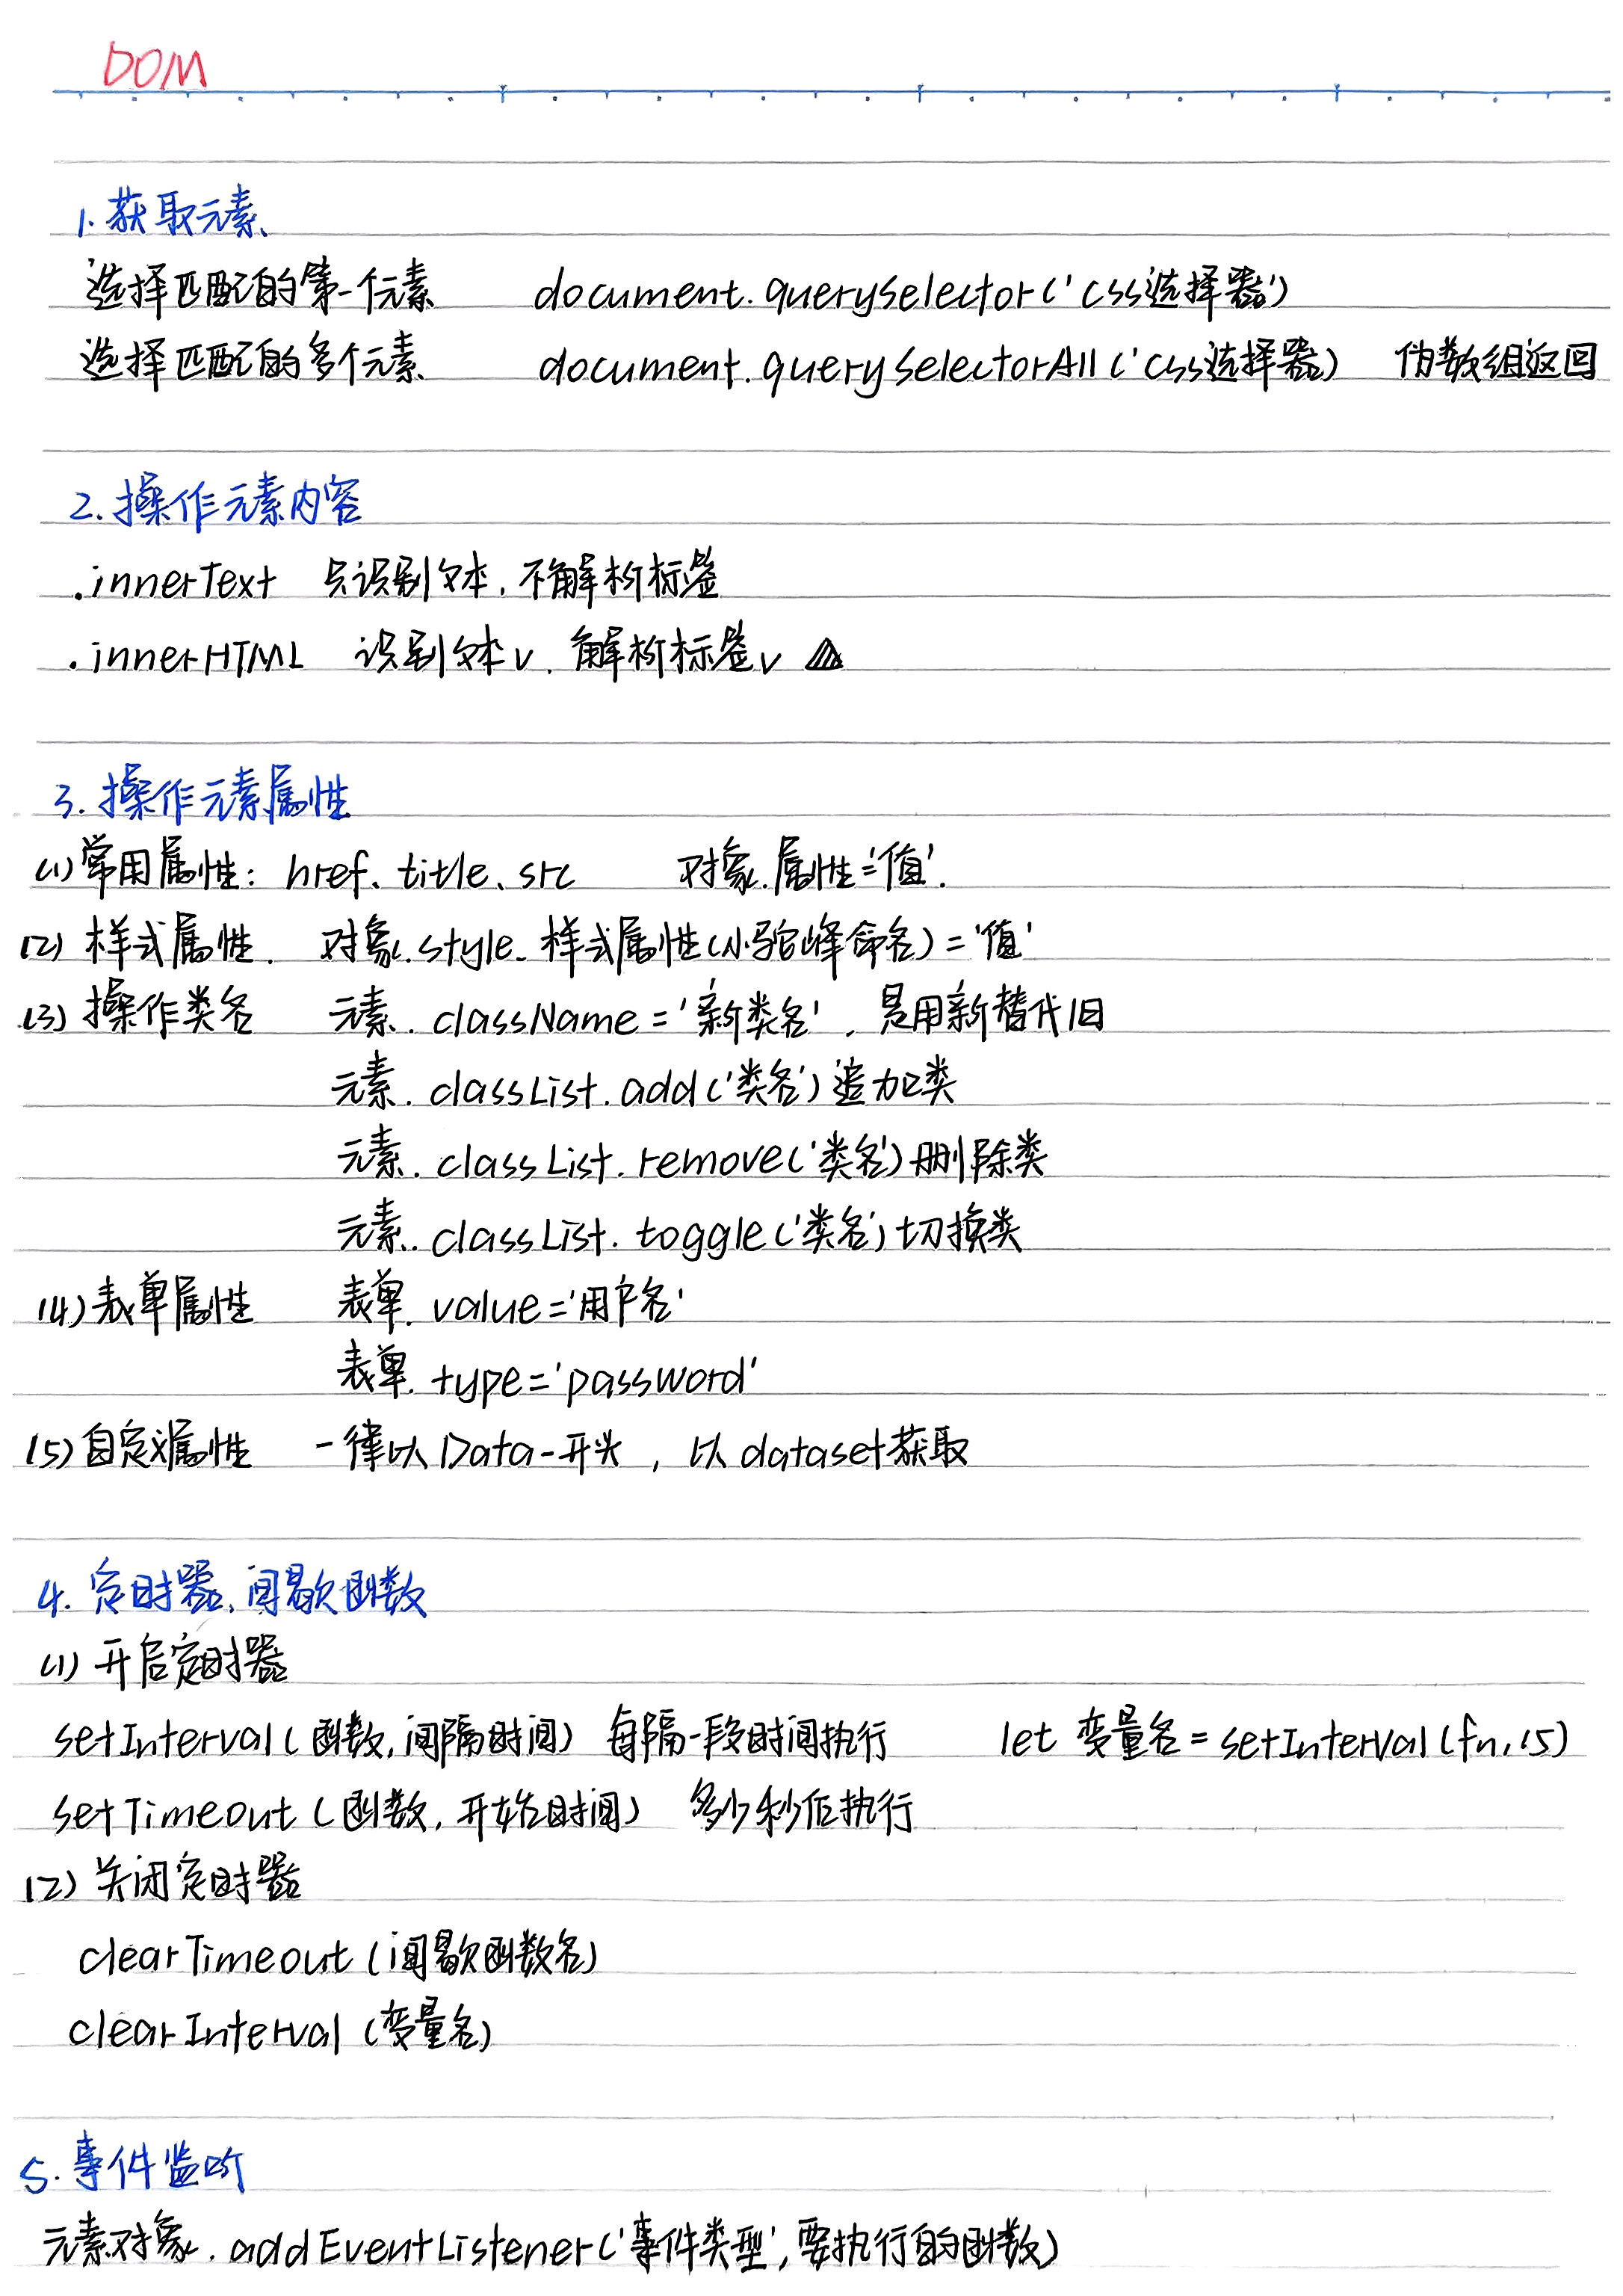 DOM
1.获取元素
选择匹配的第一个元素 document.querySelector('css选择器')
选择匹配的多个元素 document.querySelectorAll('css选择器) 伪数组返回
2.操作元素内容
.innerText 只识别文本，不解析标签
.innerHTML 识别文本√、解析标签√
3.操作元素属性
(1)常用属性：href、title、src 对象.属性='值'.
(2)样式属性. 对象.style.样式属性(小驼峰命名)='值'
(3)操作类名 元素.className='新类名'，是用新替代旧
元素.classList.add('类名')追加类
元素.classList.remove('类名')删除类
元素.classList.toggle('类名')切换类
(4)表单属性 表单.value='用户名'
表单.type='password'
(5)自定义属性 一律以Data-开头，以dataset获取
4.定时器、间歇函数
(1)开启定时器
setInterval(函数，间隔时间) 每隔一段时间执行 let 变量名=setInterval(fn,15)
setTimeout(函数，开始时间) 多少秒后执行
(2)关闭定时器
clearTimeout(间歇函数名)
clearInterval(变量名)
5.事件监听
元素对象.addEventListener('事件类型',要执行的函数)